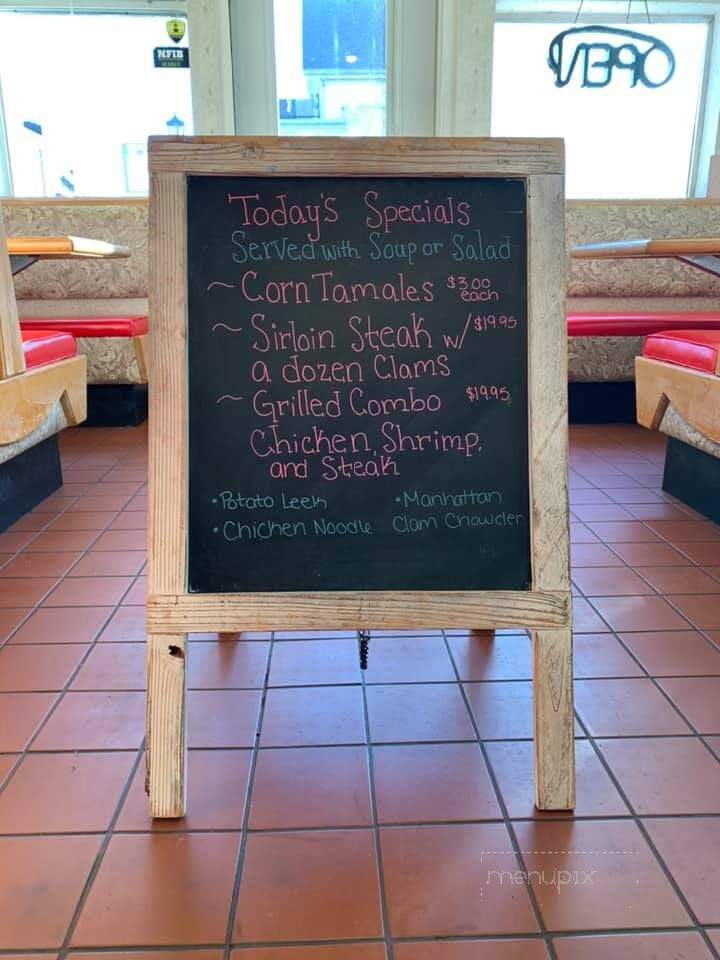 NFIB
MEMBER
OPEN
Today's Specials
Served with Soup or Salad
~ Corn Tamales $3.00 each
~ Sirloin Steak w/ $19.95
a dozen Clams
~ Grilled Combo $19.95
Chicken, Shrimp,
and Steak
• Potato Leek • Manhattan
• Chicken Noodle Clam Chowder
menupix